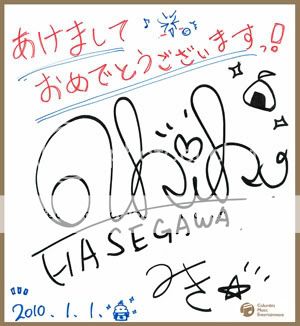 あけまして
おめでとうございますっ!
Akiko
HASEGAWA
みき☆
2010.1.1.
Columbia
Music
Entertainment